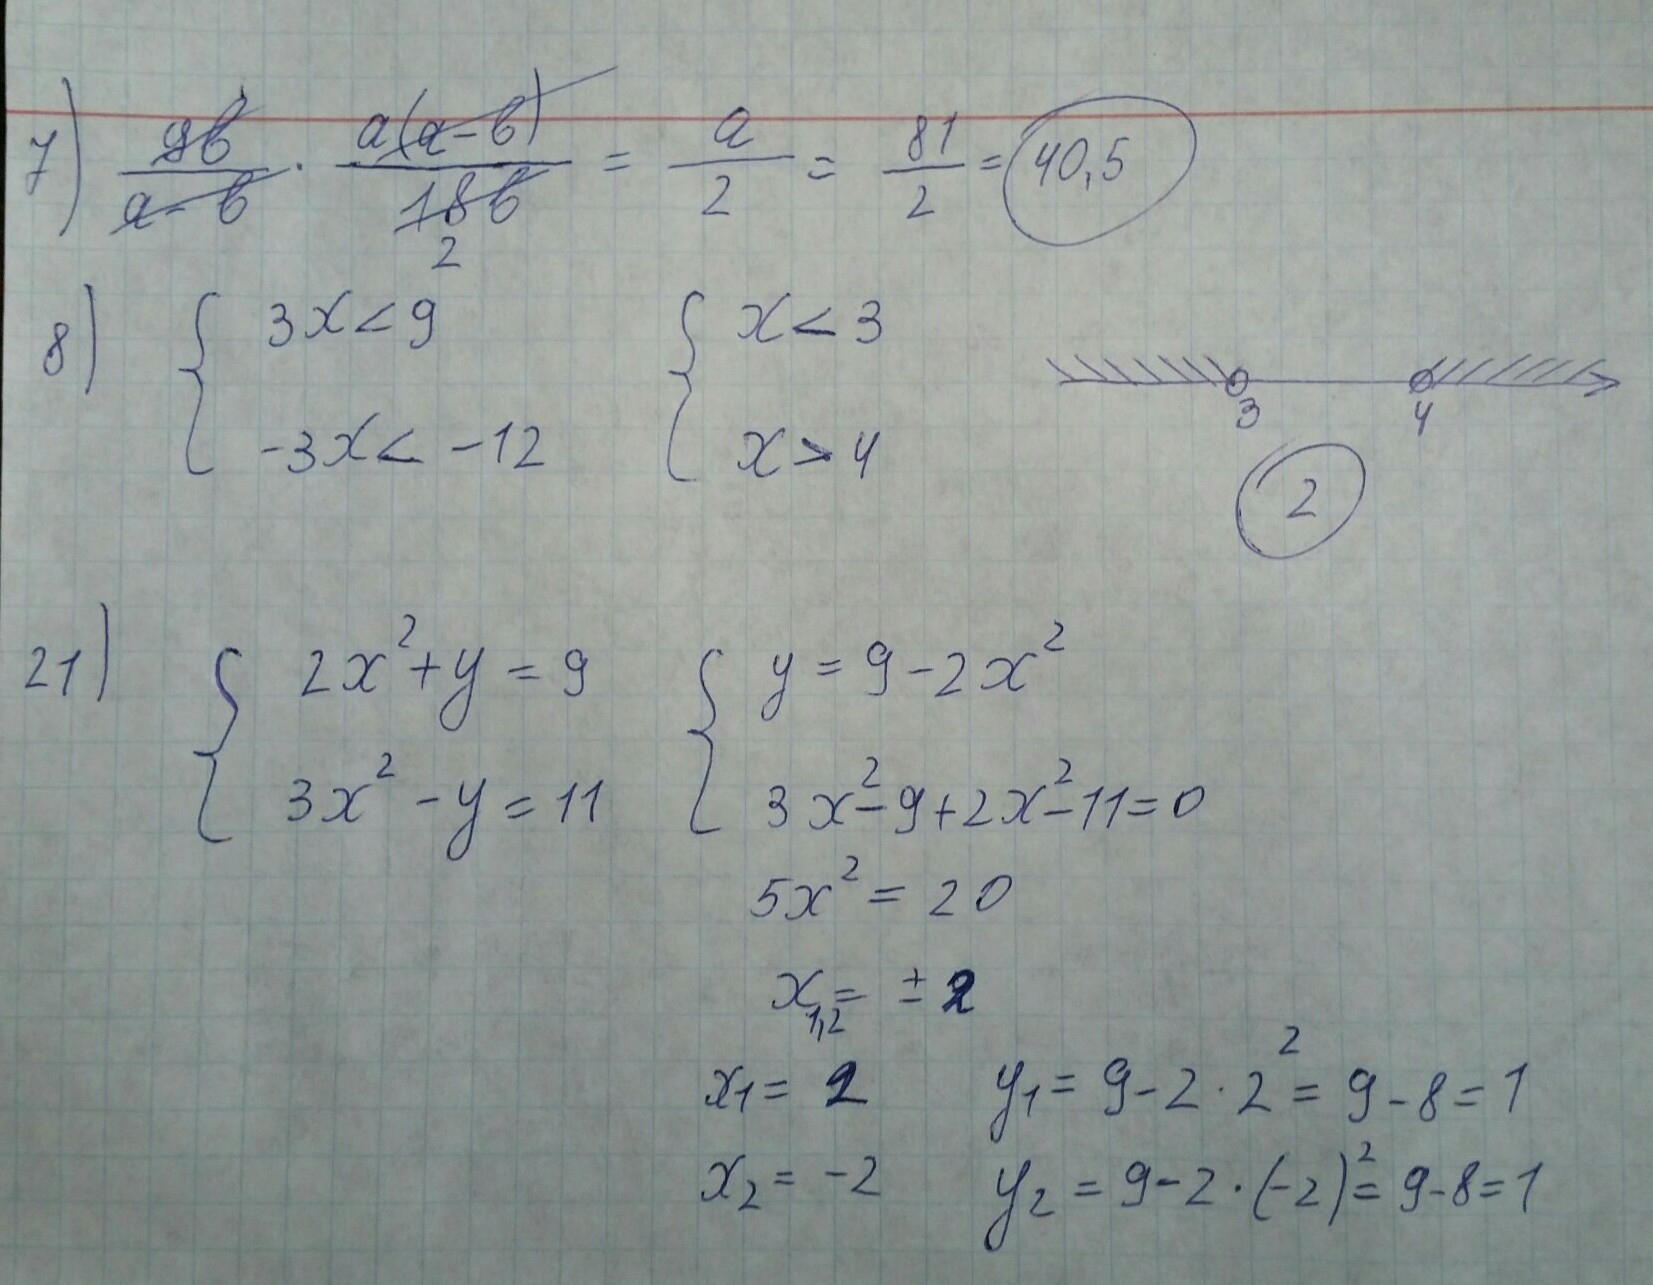 7) 9b/(a-b) · a(a-b)/18b = a/2 = 81/2 = 40,5
2
8) { 3x < 9 { x < 3
-3x < -12 x > 4
3 4
2
21) { 2x² + y = 9 { y = 9 - 2x²
3x² - y = 11 3x² - 9 + 2x² - 11 = 0
5x² = 20
x₁,₂ = ± 2
x₁ = 2 y₁ = 9 - 2 · 2² = 9 - 8 = 1
x₂ = -2 y₂ = 9 - 2 · (-2)² = 9 - 8 = 1